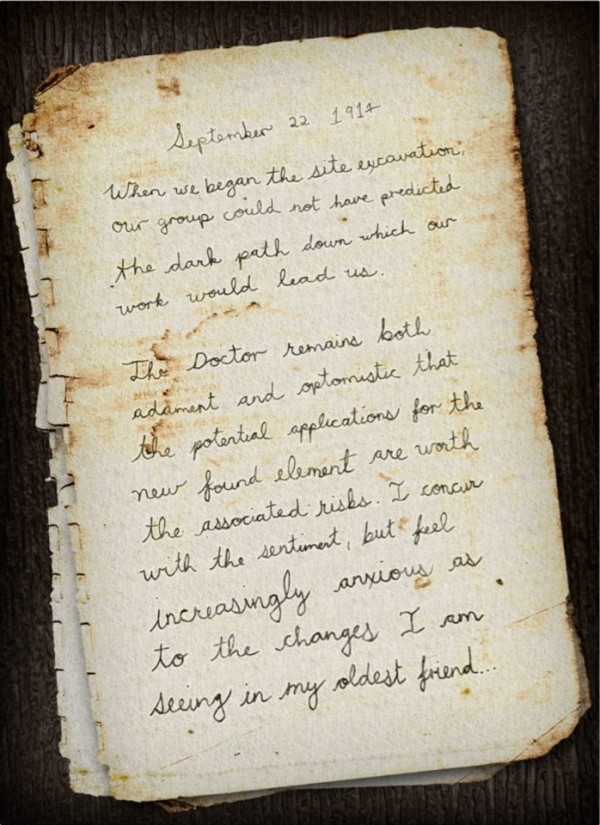 September 22 1917
When we began the site excavation,
our group could not have predicted
the dark path down which our
work would lead us.
The Doctor remains both
adament and optomistic that
the potential applications for the
new found element are worth
the associated risks. I concur
with the sentiment, but feel
increasingly anxious as
to the changes I am
seeing in my oldest friend...